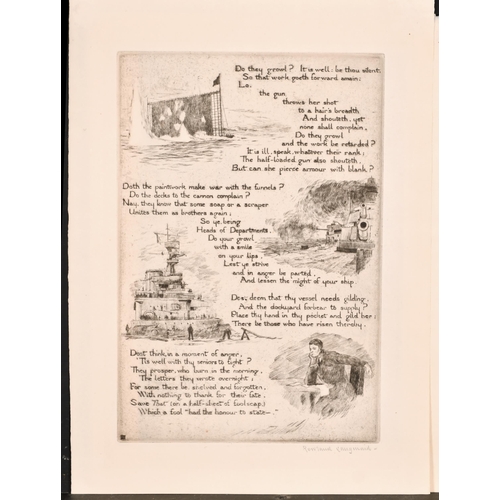 Do they growl? It is well: be thou silent;
So that work goeth forward amain;
Lo,
the gun
throws her shot
to a hair's breadth
And shouteth, yet
none shall complain,
Do they growl
and the work be retarded?
It is ill, speak, whatever their rank;
The half-loaded gun also shouteth,
But can she pierce armour with blank?
Doth the paintwork make war with the funnels?
Do the decks to the cannon complain?
Nay, they know that some soap or a scraper
Unites them as brothers again;
So ye, being
Heads of Departments,
Do your growl
with a smile
on your lips,
Lest ye strive
and in anger be parted,
And lessen the might of your ship.
Dost deem that thy vessel needs gilding,
And the dockyard forbear to supply?
Place thy hand in thy pocket and gild her:
There be those who have risen thereby.
Dost think, in a moment of anger,
'Tis well with thy seniors to fight?
They prosper, who burn in the morning,
The letters they wrote overnight;
For some there be, shelved and forgotten,
With nothing to thank for their fate,
Save That (on a half-sheet of foolscap)
Which a fool "had the honour to state—"
Rowland Langmaid